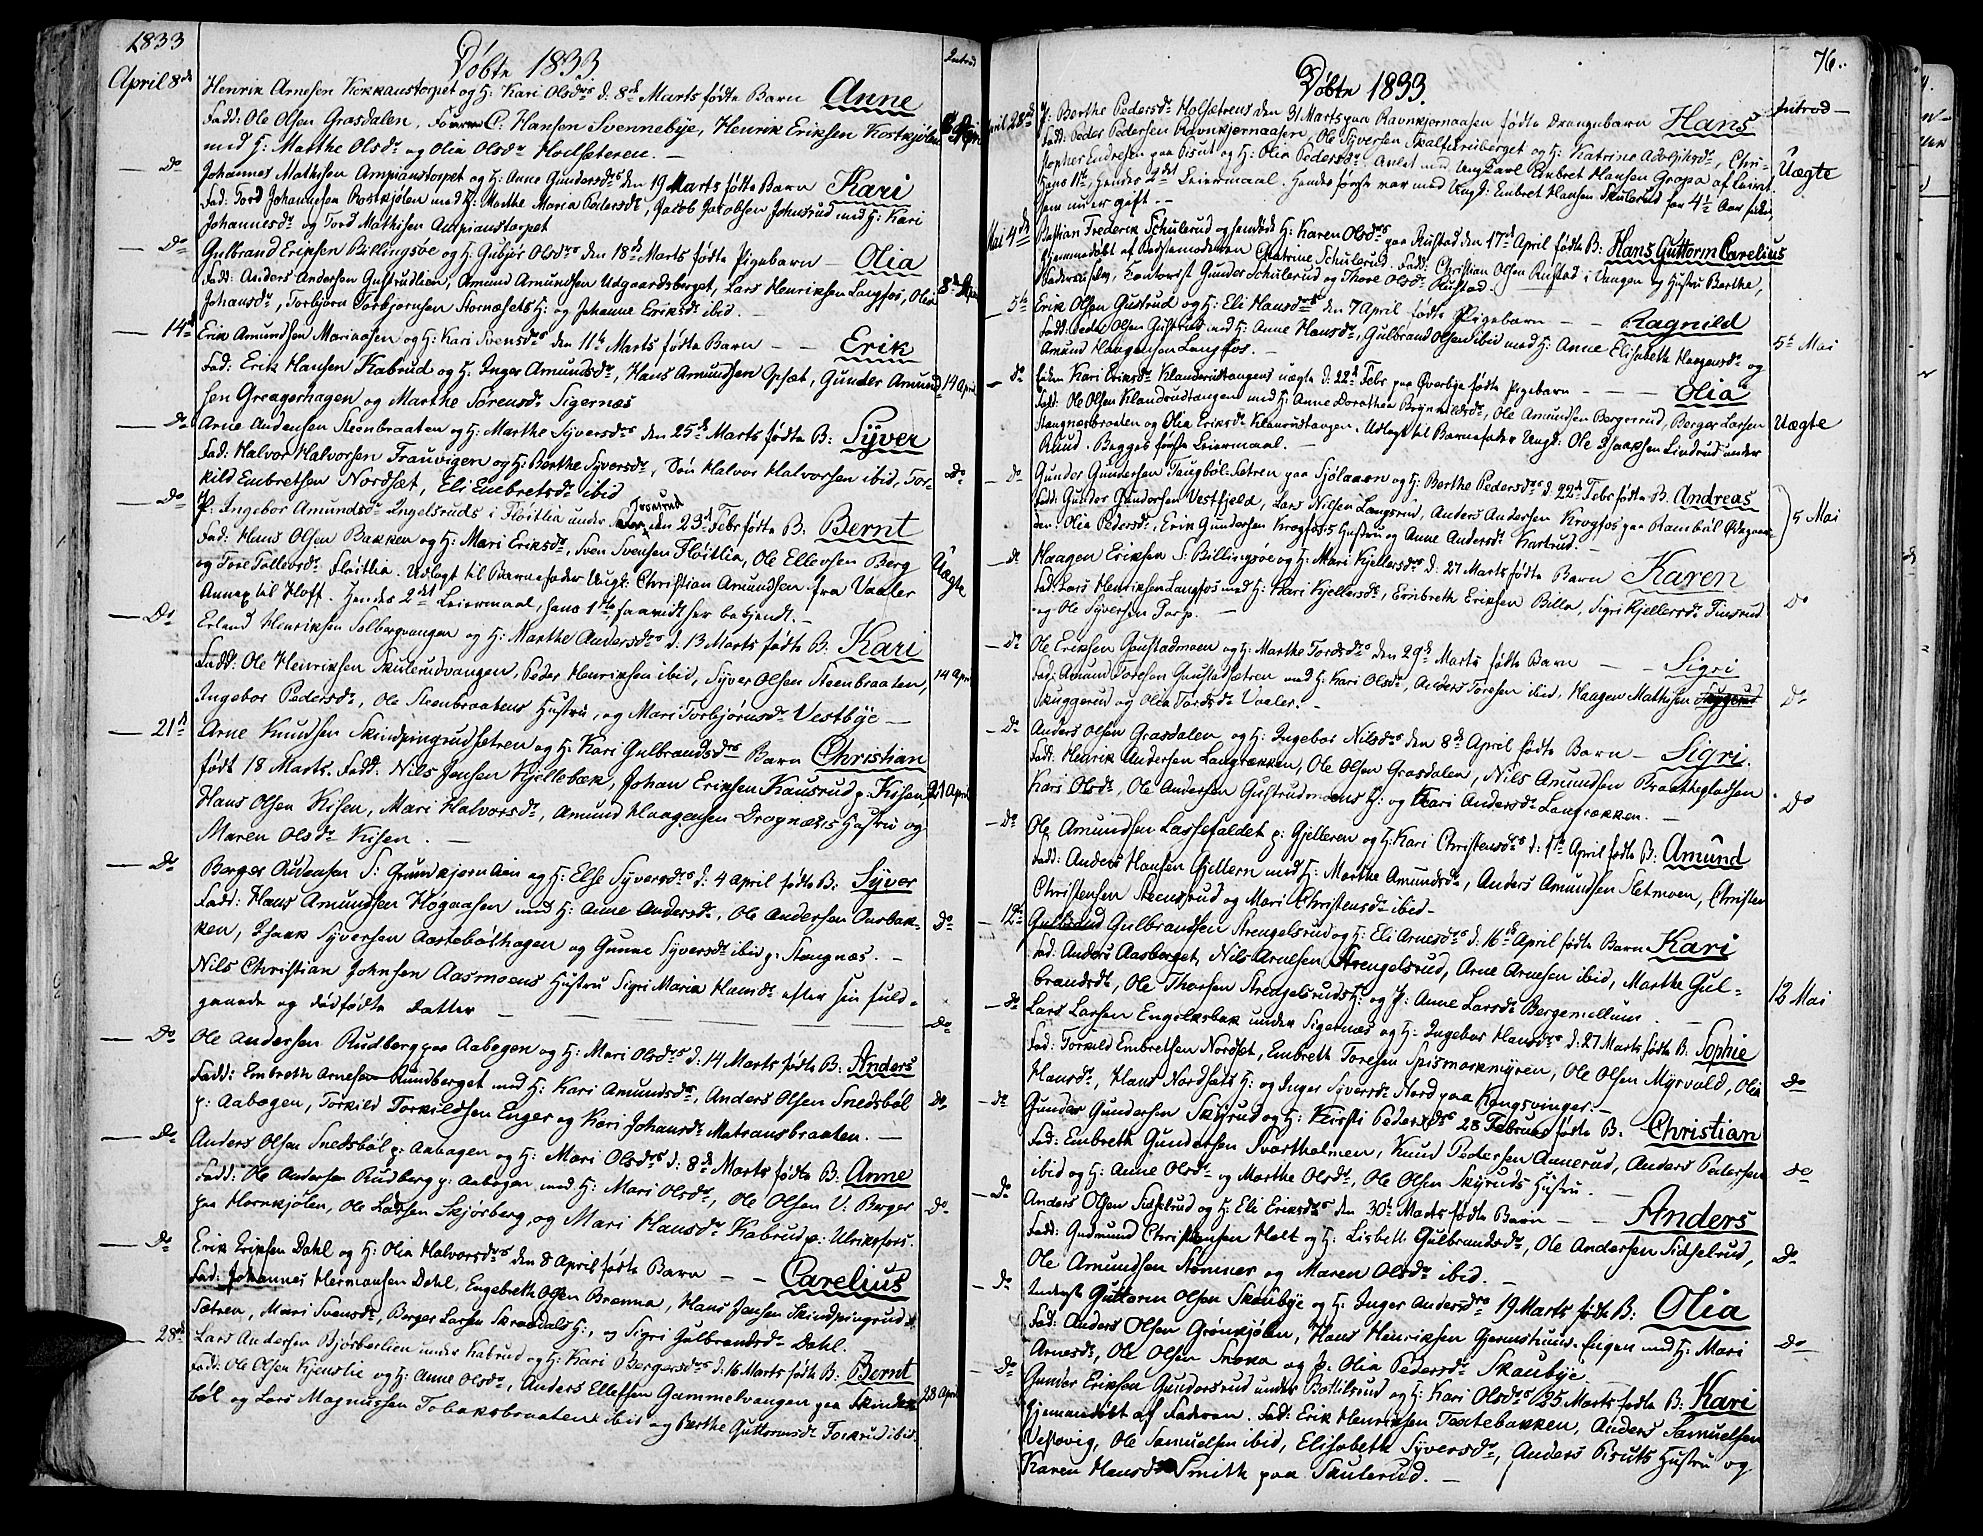 1833
Døbte 1833.
Introd
April 8de
Henrik Arnesen Kokkaustorpet og H: Kari Olsdrs d. 8de Marts fødte Barn Anne
Fadd: Ole Olsen Grasdalen, C. Hansen Svennebye, Henrik Eriksen Kortkjølen
med H: Marthe Olsdr og Olia Olsdr Hodseteren. —
— Do Johannes Mathisen Ampianstorpet og H: Anne Gundersdrs den 19 Marts fødte Barn Kari
Fad: Tord Johannesen Rostkjølen med H: Marthe Maria Pedersdr, Jacob Jacobsen Johnsrud med H: Kari
Johannesdr og Tord Mathisen Ampianstorpet
— Do Gulbrand Eriksen Billingsøe og H: Gubjør Olsdrs den 18de Marts fødte Pigebarn — Olia
Fadd: Anders Andersen Gustrudlien, Amund Amundsen Udgaardsberget, Lars Henriksen Langfos, Olia 8de April
Johansdr, Torbjørn Torbjørnsen Stornæsets H: og Johanne Eriksdr ibid. —
— 14de Erik Amundsen Mariaasen og H: Kari Svensdrs den 11te Marts fødte Barn — — Erik
Fad: Erik Hansen Kabrud og H. Inger Amundsdr, Hans Amundsen Opsæt, Gunder Amund- 14 April
sen Greagershagen og Marthe Sørensdr Sigernæs
— Do Arne Audensen Steenbraaten og H: Marthe Syversdrs den 25de Marts fødte B: Syver
Fad: Halvor Halvorsen Frauvigen og H: Berthe Syversdr, Søn Halvor Halvorsen ibid, Tor- Do
kild Embretsen Nordsæt, Eli Embretsdr ibid
— Do P. Ingebor Amundsdr Ingelsruds i Fløitlia under den 23d Febr fødte B. Bernt
Fad: Hans Olsen Bakken og H: Mari Eriksdr, Sven Svensen Fløitlia, Ole Ellevsen Berg
og Tore Tollevsdr Fløitlia. Udlagt til Barnefader Ungk: Christian Amundsen fra Vaaler Uægte
Annex til Hoff. Hendes 2det Leiermaal, hans 1ste saavidt her bekjendt. —
— Do Erland Henriksen Solbergvangen og H: Marthe Andersdrs d. 13 Marts fødte B: Kari
Fadd: Ole Henriksen Skulerudvangen, Peder Henriksen ibid, Syver Olsen Steenbraaten, 14 April
Ingebor Pedersdr, Ole Steenbraatens Hustru, og Mari Torbjørnsdr Vestbye —
— 21de Arne Knudsen Skindpungrudsetren og H: Kari Gulbrandsdrs Barn Christian
født 18 Marts. Fadd. Nils Jensen Kjellebæk, Johan Eriksen Kausrud p: Kisen 21 April
Hans Olsen Kisen, Mari Halvorsdr, Amund Haagensen Drognæs's Hustru og
Maren Olsdr Kisen. —
— Do Berger Audensen S: Grundkjernåsen og H: Else Syversdrs d: 4 April fødte B: Syver
Fadd: Hans Amundsen Høgaasen med H: Anne Andersdr, Ole Andersen Aasbak- Do
ken, Isaak Syversen Aastebølhagen og Gunne Syversdr ibid p: Stangnæs. —
Nils Christian Johnsen Aasmoens Hustru Sigri Maria Hansdr efter sin fuld-
gaaede og dødfødte Datter — — — — — Do
— Do Ole Andersen Rudberg paa Aabogen og H: Mari Olsdrs d. 14 Marts fødte B: Anders
Fadd: Embreth Arnesen Rundberget med H: Kari Amundsdr, Anders Olsen Snedsbøl Do
p: Aabogen, Torkild Torkildsen Enger og Kari Johansdr Matransbraaten. —
— Do Anders Olsen Snedsbøl p: Aabogen og H: Mari Olsdrs d: 8de Marts fødte B: Anne
Fadd: Ole Andersen Rudberg p: Aabogen med H: Mari Olsdr, Ole Olsen V: Berger Do
paa Hornkjølen, Ole Larsen Skjørberg, og Mari Hansdr Kabrud p: Ulriksfors.
— Do Erik Eriksen Dahl og H: Olia Halvorsdrs den 8 April fødte Barn — — Carelius
Fad: Johannes Hermansen Dahl, Engebreth Olsen Brænna, Hans Jensen Skindpungrud
Sætren, Mari Svensdr, Berger Larsen Skrandals H:, og Sigri Gulbrandsdr Dahl.
— 28de Lars Andersen Bjørberlien under Kabrud og H: Kari Bergersdrs d. 16 Marts fødte B: Bernt
Fad: Ole Olsen Kjenslie og H: Anne Olsdr, Anders Ellefsen Gammelvangen paa Skinder- 28 April
bøl og Lars Magnussen Tobaksbraaten ibid og Berthe Guttormsdr Foskrud ibid.
Døbte 1833.
76.
Introd —
April 28de P. Berthe Pedersdr Holsetrens den 31 Marts paa Ravnkjernaasen fødte Drengebarn Hans
Fad: Peder Pedersen Ravnkjernaasen, Ole Syversen Skalfetriberget og H: Katrine Adolphsdr, Chri-
stopher Endresen paa Pisut og H: Olia Pedersdr. Avlet med Ung Karl Embret Hansen Gropa af Leiret. Uægte
Hans 1te, Hendes 2det Leiermaal. Hendes første var med Ungk: Embret Hansen Skulerud for 4½ Aar siden,
som nu er gift. —
Mai 4de Bastian Frederik Schulerud og H: Karen Olsdrs paa Rustad den 17de April fødte B: Hans Guttorm Carelius
Hjemmedøbt af Bedstemoderen Chatrine Schulerud. Fadd: Christian Olsen Rustad i Vangen og Hustru Berthe,
Faderen selv, Kontorist Gunder Schulerud og Thore Olsdr Rustad.
— 5te Erik Olsen Gustrud og H: Eli Hansdrs den 7 April fødte Pigebarn — — Ragnild
Fadd: Peder Olsen Gustrud med H: Anne Hansdr, Gulbrand Olsen ibid med H: Anne Elisabeth Haagensdr og 5te Mai
Amund Haagensen Langfos. —
— Do Piken Kari Eriksdr Klanderudtangens uægte d: 22d Febr paa Øverbye fødte Pigebarn — — — Olia
Fad: Ole Olsen Klandrudtangen med H: Anne Dorothea Brynnildsdr, Ole Amundsen Bergerrud, Berger Larsen Uægte
Stangnæsbraaten og Olia Eriksdr Klanrudtangen. Udlagt til Barnefader Ungk: Ole Isaaksen Lindrud under
Ruud. Begges første Leiermaal. —
— Do Gunder Gundersen Taugbøl-Setren paa Sjølaaen og H: Berthe Pedersdrs d. 22de Febr fødte B. Andreas
Fad: Gunder Gundersen Vestfjeld, Lars Nilsen Langsrud, Anders Andersen Krogfos paa Rambøl Pikema- 5 Mai
den Olia Pedersdr, Erik Gundersen Krogfos's Hustru og Anne Andersdr Kartrud. —
— Do Haagen Eriksen S: Billingsøe og H: Mari Kjellersdrs d: 27 Marts fødte Barn Karen
Fad: Lars Henriksen Langfos med H: Kari Kjellersdr, Embreth Eriksen Billa, Sigri Kjellersdr Tuusrud Do
og Ole Syversen Torp. —
— Do Ole Eriksen Gaustadmoen og H: Marthe Tordsdrs den 29de Marts fødte Barn — — Sigri
Fad: Amund Toresen Gaustadsetren med H: Kari Olsdr, Anders Toresen ibid, Haagen Mathisen Skuggerud Do
Skuggerud og Olia Tordsdr Vaaler. —
— Do Anders Olsen Grasdalen og H: Ingebor Nilsdrs den 8de April fødte Barn — Sigri.
Fadd: Henrik Andersen Langrækken, Ole Olsen Grasdalen, Nils Amundsen Braathepladsen
Kari Olsdr, Ole Andersen Gustrudmoens H: og Kari Andersdr Langrækken. — Do
— Do Ole Amundsen Lassefaldet p: Gjelleren og H: Kari Christensdrs d: 17de April fødte B: Amund
Fadd: Anders Hansen Gjellern med H: Marthe Amundsdr, Anders Amundsen Sletmoen, Christen
Christensen Steensrud og Mari Christensdr ibid —
— 12te Gulbrand Gulbrandsen Strengelsrud og H: Eli Arnesdrs d: 16de April fødte Barn Kari
Fad: Anders Aasberget, Nils Arnesen Strengelsrud, Arne Arnesen ibid, Marthe Gul-
brandsdr, Ole Thorsen Strengelsruds H: og P: Anne Larsdr Bergemellum. 12 Mai
— Do Lars Larsen Engelksbæk under Sigernæs og H: Ingebor Hansdrs d: 27 Marts fødte B: Sophie
Fad: Torkild Embretsen Nordset, Embreth Toresen Spismorkmyren, Ole Olsen Myrvold, Olia
Hansdr, Hans Nordsæts H: og Inger Syversdr Nord paa Kongsvinger. — Do
— Do Gunder Gundersen Skyrud og H: Kersti Pedersdrs 28 Februar fødte B. Christian
Fad: Embreth Gundersen Svartholmen, Knud Pedersen Aanerud, Anders Pedersen
ibid og H: Anne Olsdr og Marthe Olsdr, Ole Olsen Skyruds Hustru. — Do
— Do Anders Olsen Sidselrud og H: Eli Eriksdrs den 30te Marts fødte Barn — — Anders
Fadd: Gudmund Christiansen Holt og H: Lisbeth Gulbrandsdr, Ole Andersen Sidselrud,
Ole Amundsen Stømner og Maren Olsdr ibid. — Do
— Do Inderst Guttorm Olsen Skaubye og H: Inger Andersdrs 19 Marts fødte B: Olia
Fad: Anders Olsen Grønkjølen, Hans Henriksen Gjermshuus-Eugen med H: Mari
Arnesdr, Ole Olsen Snoka og P: Olia Pedersdr Skaubye. Do
— Do Gunder Eriksen Gundersrud under Bottilsrud og H: Kari Olsdrs 25 Marts fødte B: Kari
hjemmedøbt af Faderen. Fad: Erik Henriksen Tastebakken, Anders Samuelsen
Vestvig, Ole Samuelsen ibid, Elisabeth Syversdr, Anders Pisuts Hustru og
Karen Hansdr Smith paa Skulerud. —